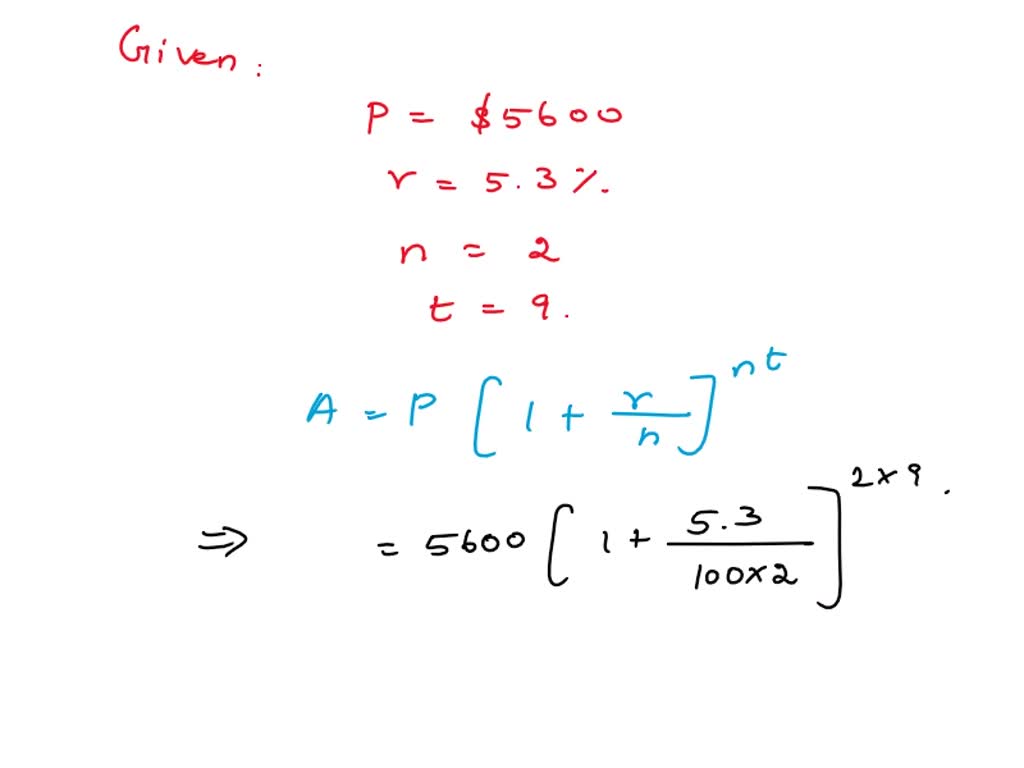 Given:
P = $5600
r = 5.3%.
n = 2
t = 9.
A = P [1 + r/n]^nt
⇒ = 5600 [1 + 5.3/100×2]^2×9.